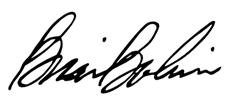 Brian Bolvin